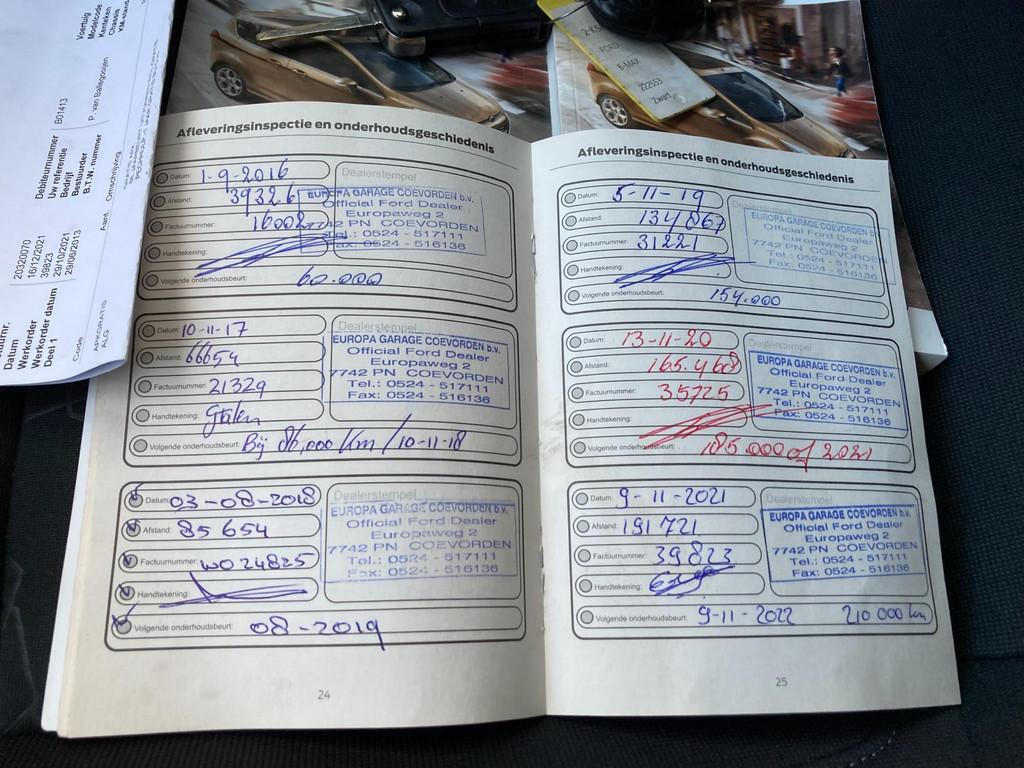 Datum
Werkorder
Werkorder datum
Deel 1
20320070
16/12/2021
39623
29/10/2021
29/06/2013
Debiteurnummer B01413
Uw referentie
Bedrijf
Bestuurder P. van Ballegooijen
B.T.W. nummer
Voertuig
Modelcode
Kenteken
Chassis
KM-stand
Code Aant. Omschrijving
APKGRATIS
ALG
FORD
B-MAX
222553
Zwart
Afleveringsinspectie en onderhoudsgeschiedenis
Datum: 1-9-2016
Afstand: 39326
Factuurnummer: 16002
Handtekening:
Volgende onderhoudsbeurt: 60.000
Dealerstempel
EUROPA GARAGE COEVORDEN b.v.
Official Ford Dealer
Europaweg 2
7742 PN COEVORDEN
Tel.: 0524 - 517111
Fax: 0524 - 516136
Datum: 10-11-17
Afstand: 66654
Factuurnummer: 21329
Handtekening:
Volgende onderhoudsbeurt: Bij 86,000 Km / 10-11-18
Dealerstempel
EUROPA GARAGE COEVORDEN b.v.
Official Ford Dealer
Europaweg 2
7742 PN COEVORDEN
Tel.: 0524 - 517111
Fax: 0524 - 516136
Datum: 03-08-2018
Afstand: 85654
Factuurnummer: WO24825
Handtekening:
Volgende onderhoudsbeurt: 08-2019
Dealerstempel
EUROPA GARAGE COEVORDEN b.v.
Official Ford Dealer
Europaweg 2
7742 PN COEVORDEN
Tel.: 0524 - 517111
Fax: 0524 - 516136
24
Afleveringsinspectie en onderhoudsgeschiedenis
Datum: 5-11-19
Afstand: 134867
Factuurnummer: 31221
Handtekening:
Volgende onderhoudsbeurt: 154.000
Dealerstempel
EUROPA GARAGE COEVORDEN b.v.
Official Ford Dealer
Europaweg 2
7742 PN COEVORDEN
Tel.: 0524 - 517111
Fax: 0524 - 516136
Datum: 13-11-20
Afstand: 165.468
Factuurnummer: 35725
Handtekening:
Volgende onderhoudsbeurt: 185.000 of 2021
Dealerstempel
EUROPA GARAGE COEVORDEN b.v.
Official Ford Dealer
Europaweg 2
7742 PN COEVORDEN
Tel.: 0524 - 517111
Fax: 0524 - 516136
Datum: 9-11-2021
Afstand: 191721
Factuurnummer: 39823
Handtekening:
Volgende onderhoudsbeurt: 9-11-2022 210 000 km
Dealerstempel
EUROPA GARAGE COEVORDEN b.v.
Official Ford Dealer
Europaweg 2
7742 PN COEVORDEN
Tel.: 0524 - 517111
Fax: 0524 - 516136
25